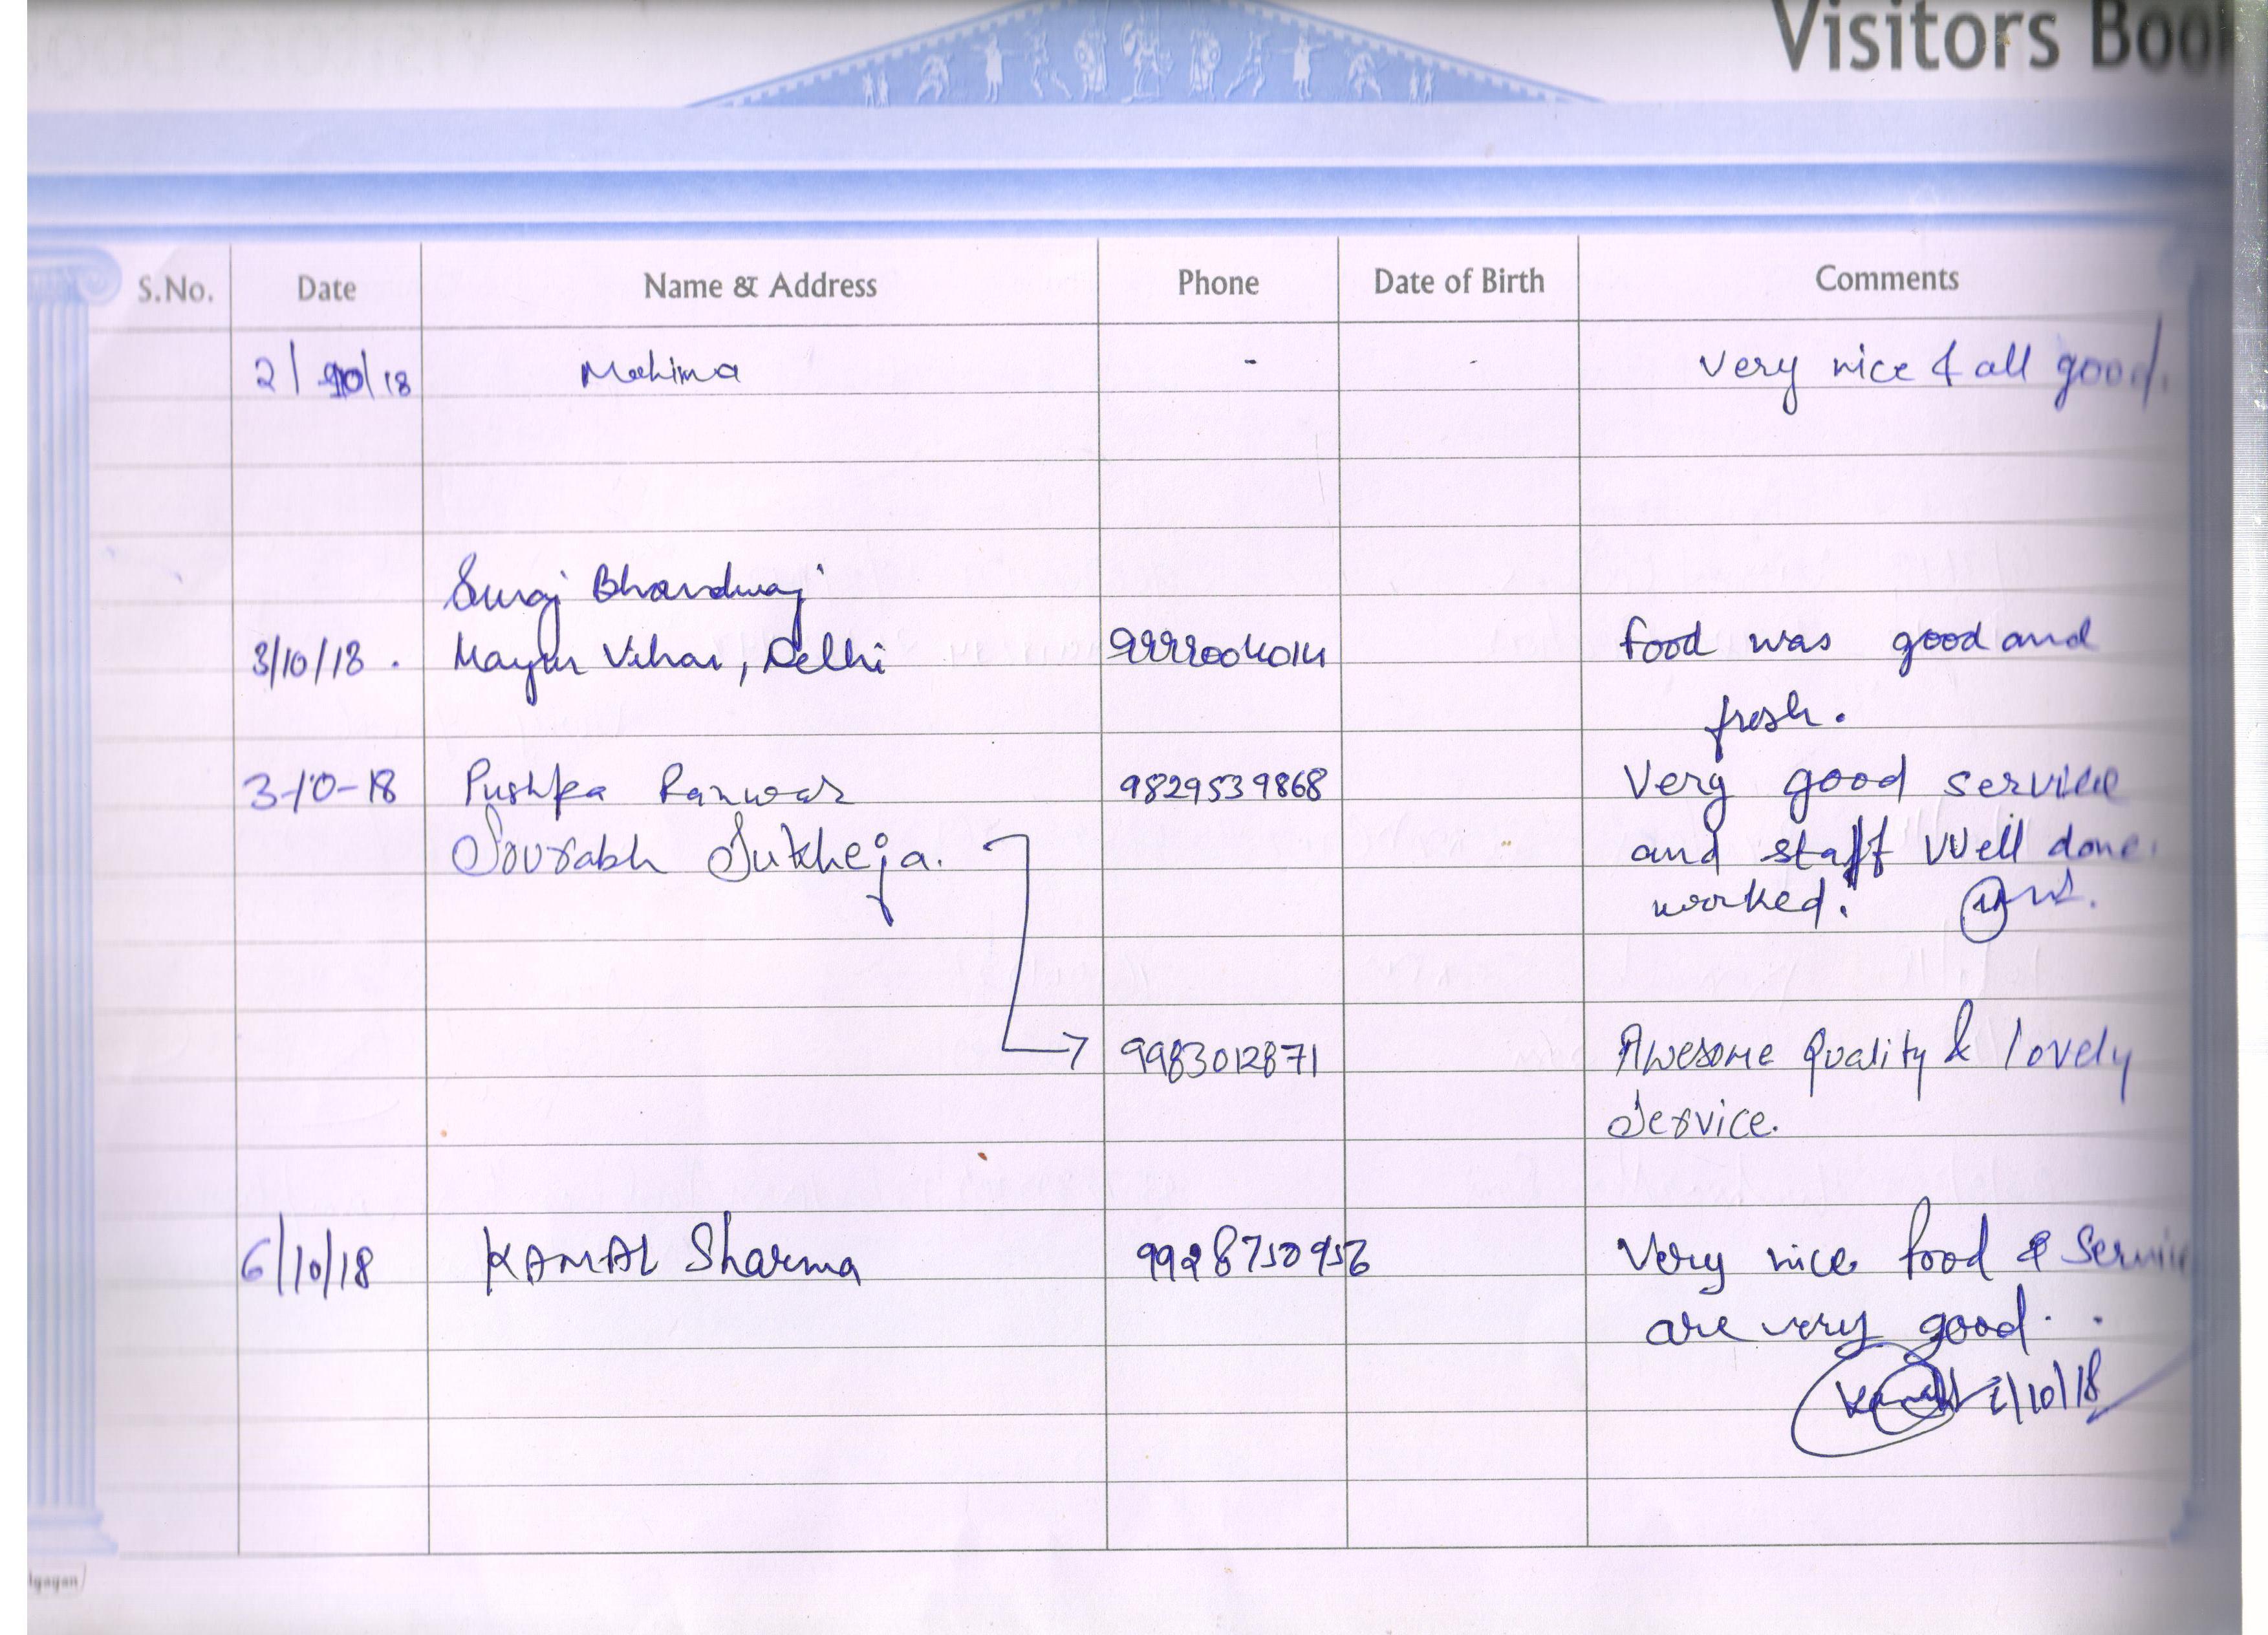 Visitors Book
S.No. Date Name & Address Phone Date of Birth Comments
2/10/18 Mahima - - Very nice & all good.
Suraj Bhardwaj
3/10/18. Mayur Vihar, Delhi 9999004014 food was good and
fresh.
3-10-18 Pushpa Ranwar 9829539868 Very good service
Sourabh Sukheja. and staff Well done.
worked.
9983012871 Awesome Quality & lovely
Service.
6/10/18 KAMAL Sharma 9928750956 Very nice food & Service
are very good.
Kamal /10/18